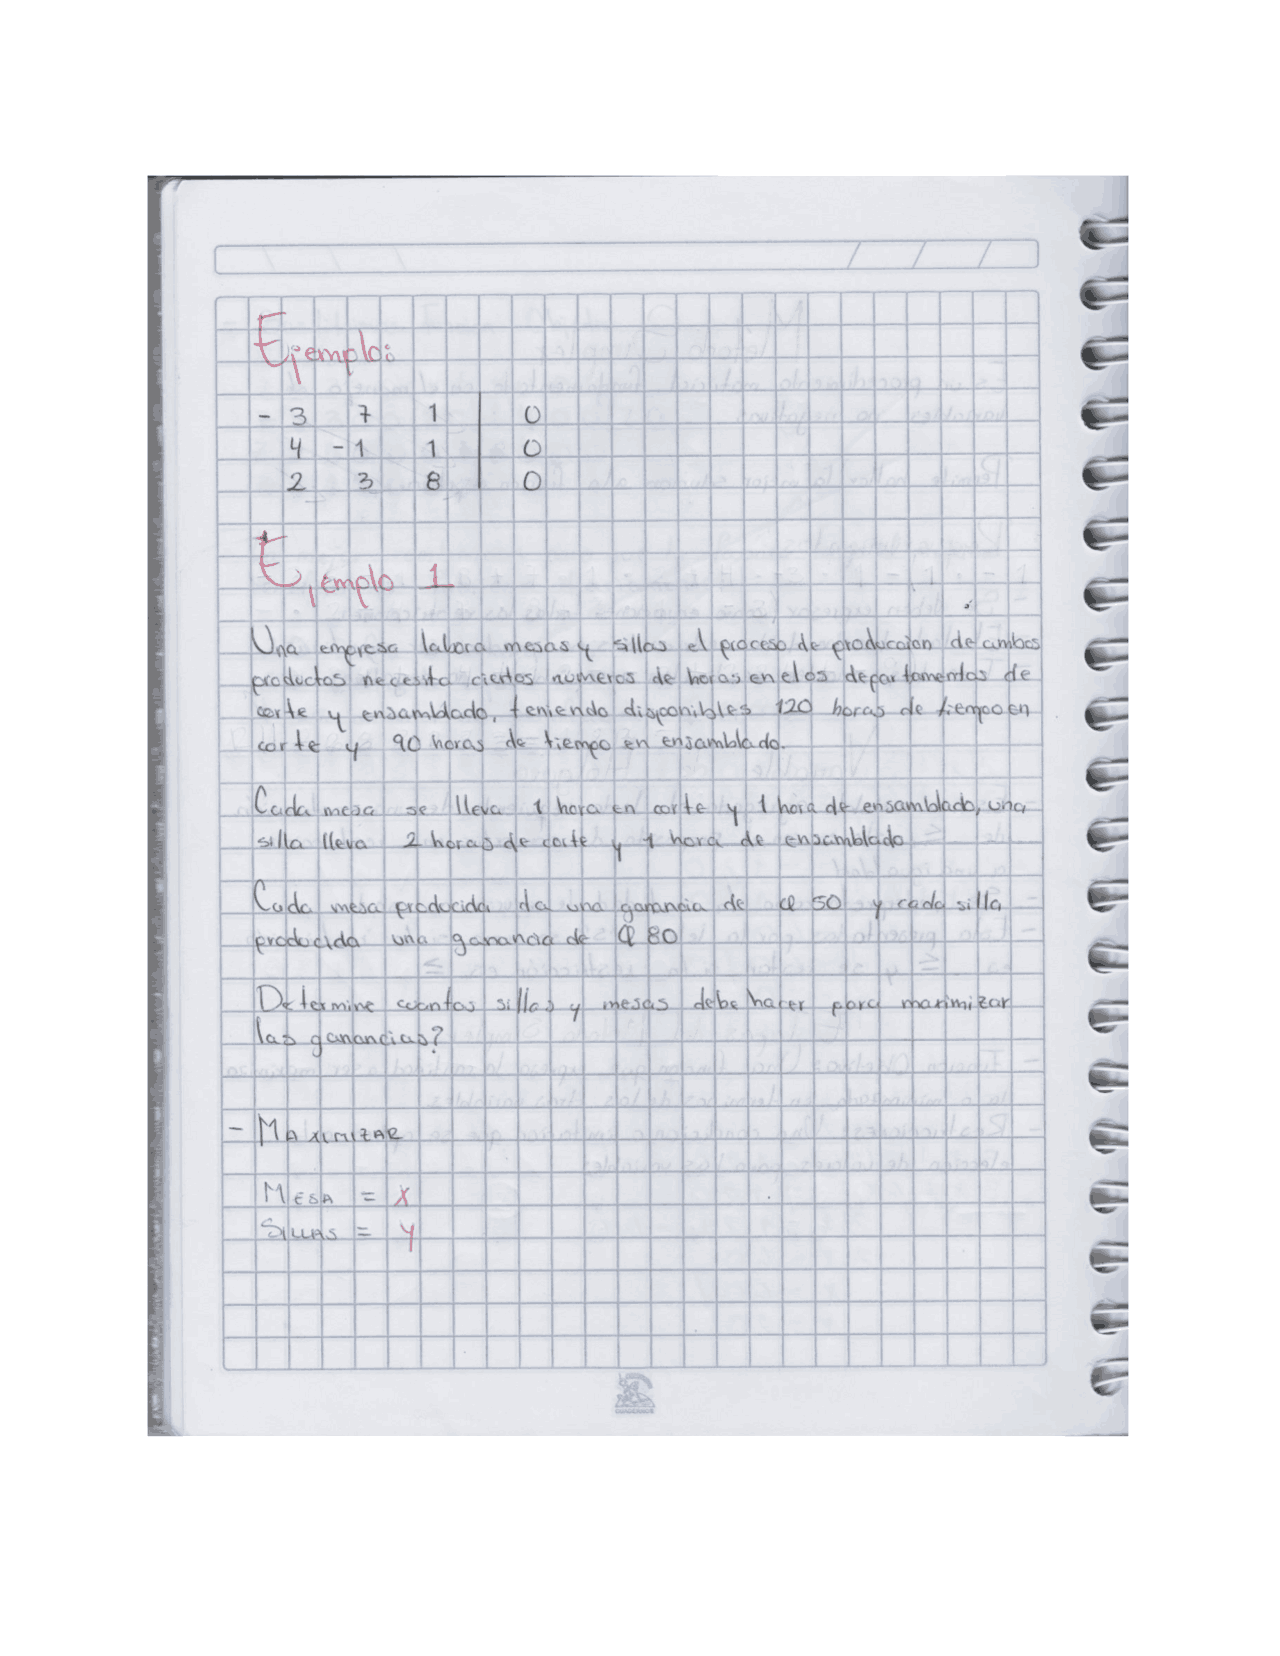 Ejemplo:
- 3 7 1 | 0
4 -1 1 | 0
2 3 8 | 0
Ejemplo 1
Una empresa labora mesas y sillas el proceso de produccion de ambos
productos necesita ciertos números de horas en elos departamentos de
corte y ensamblado, teniendo disponibles 120 horas de tiempo en
corte y 90 horas de tiempo en ensamblado.
Cada mesa se lleva 1 hora en corte y 1 hora de ensamblado, una
silla lleva 2 horas de corte y 1 hora de ensamblado
Cada mesa producida da una ganancia de Q 50 y cada silla
producida una ganancia de Q 80
Determine cuantas sillas y mesas debe hacer para maximizar
las ganancias?
- MAXIMIZAR
MESA = X
SILLAS = Y